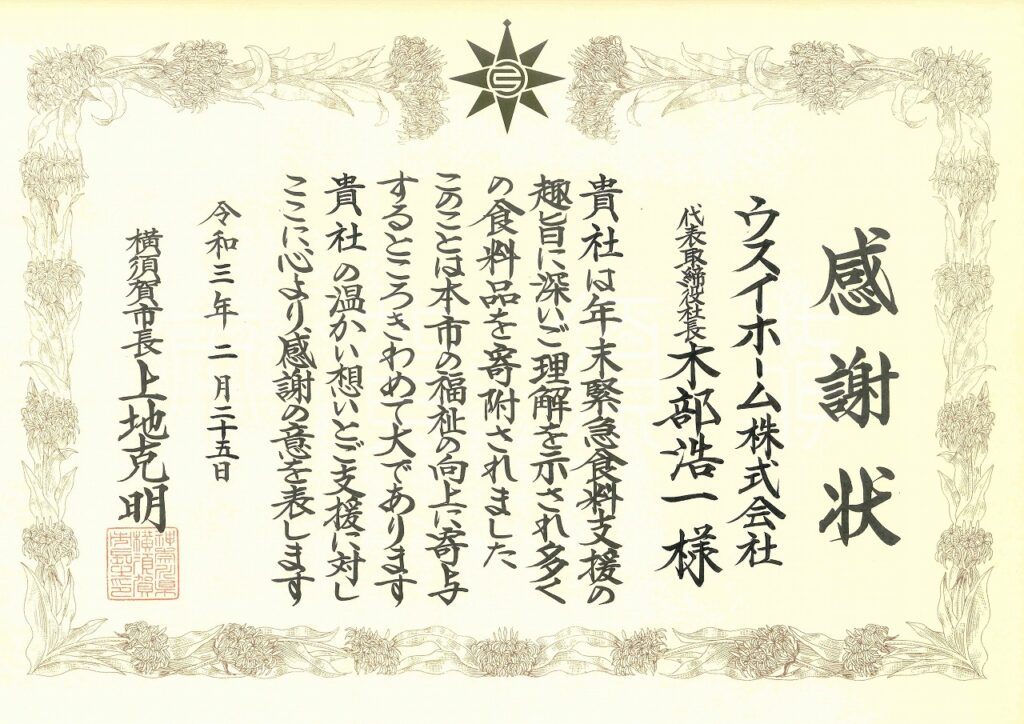 感謝状
ウスイホーム株式会社
代表取締役社長 木部浩一様
貴社は年末緊急食料支援の
趣旨に深いご理解を示され多く
の食料品を寄附されました
このことは本市の福祉の向上に寄与
するところきわめて大であります
貴社の温かい想いとご支援に対し
ここに心より感謝の意を表します
令和三年二月二十五日
横須賀市長 上地克明